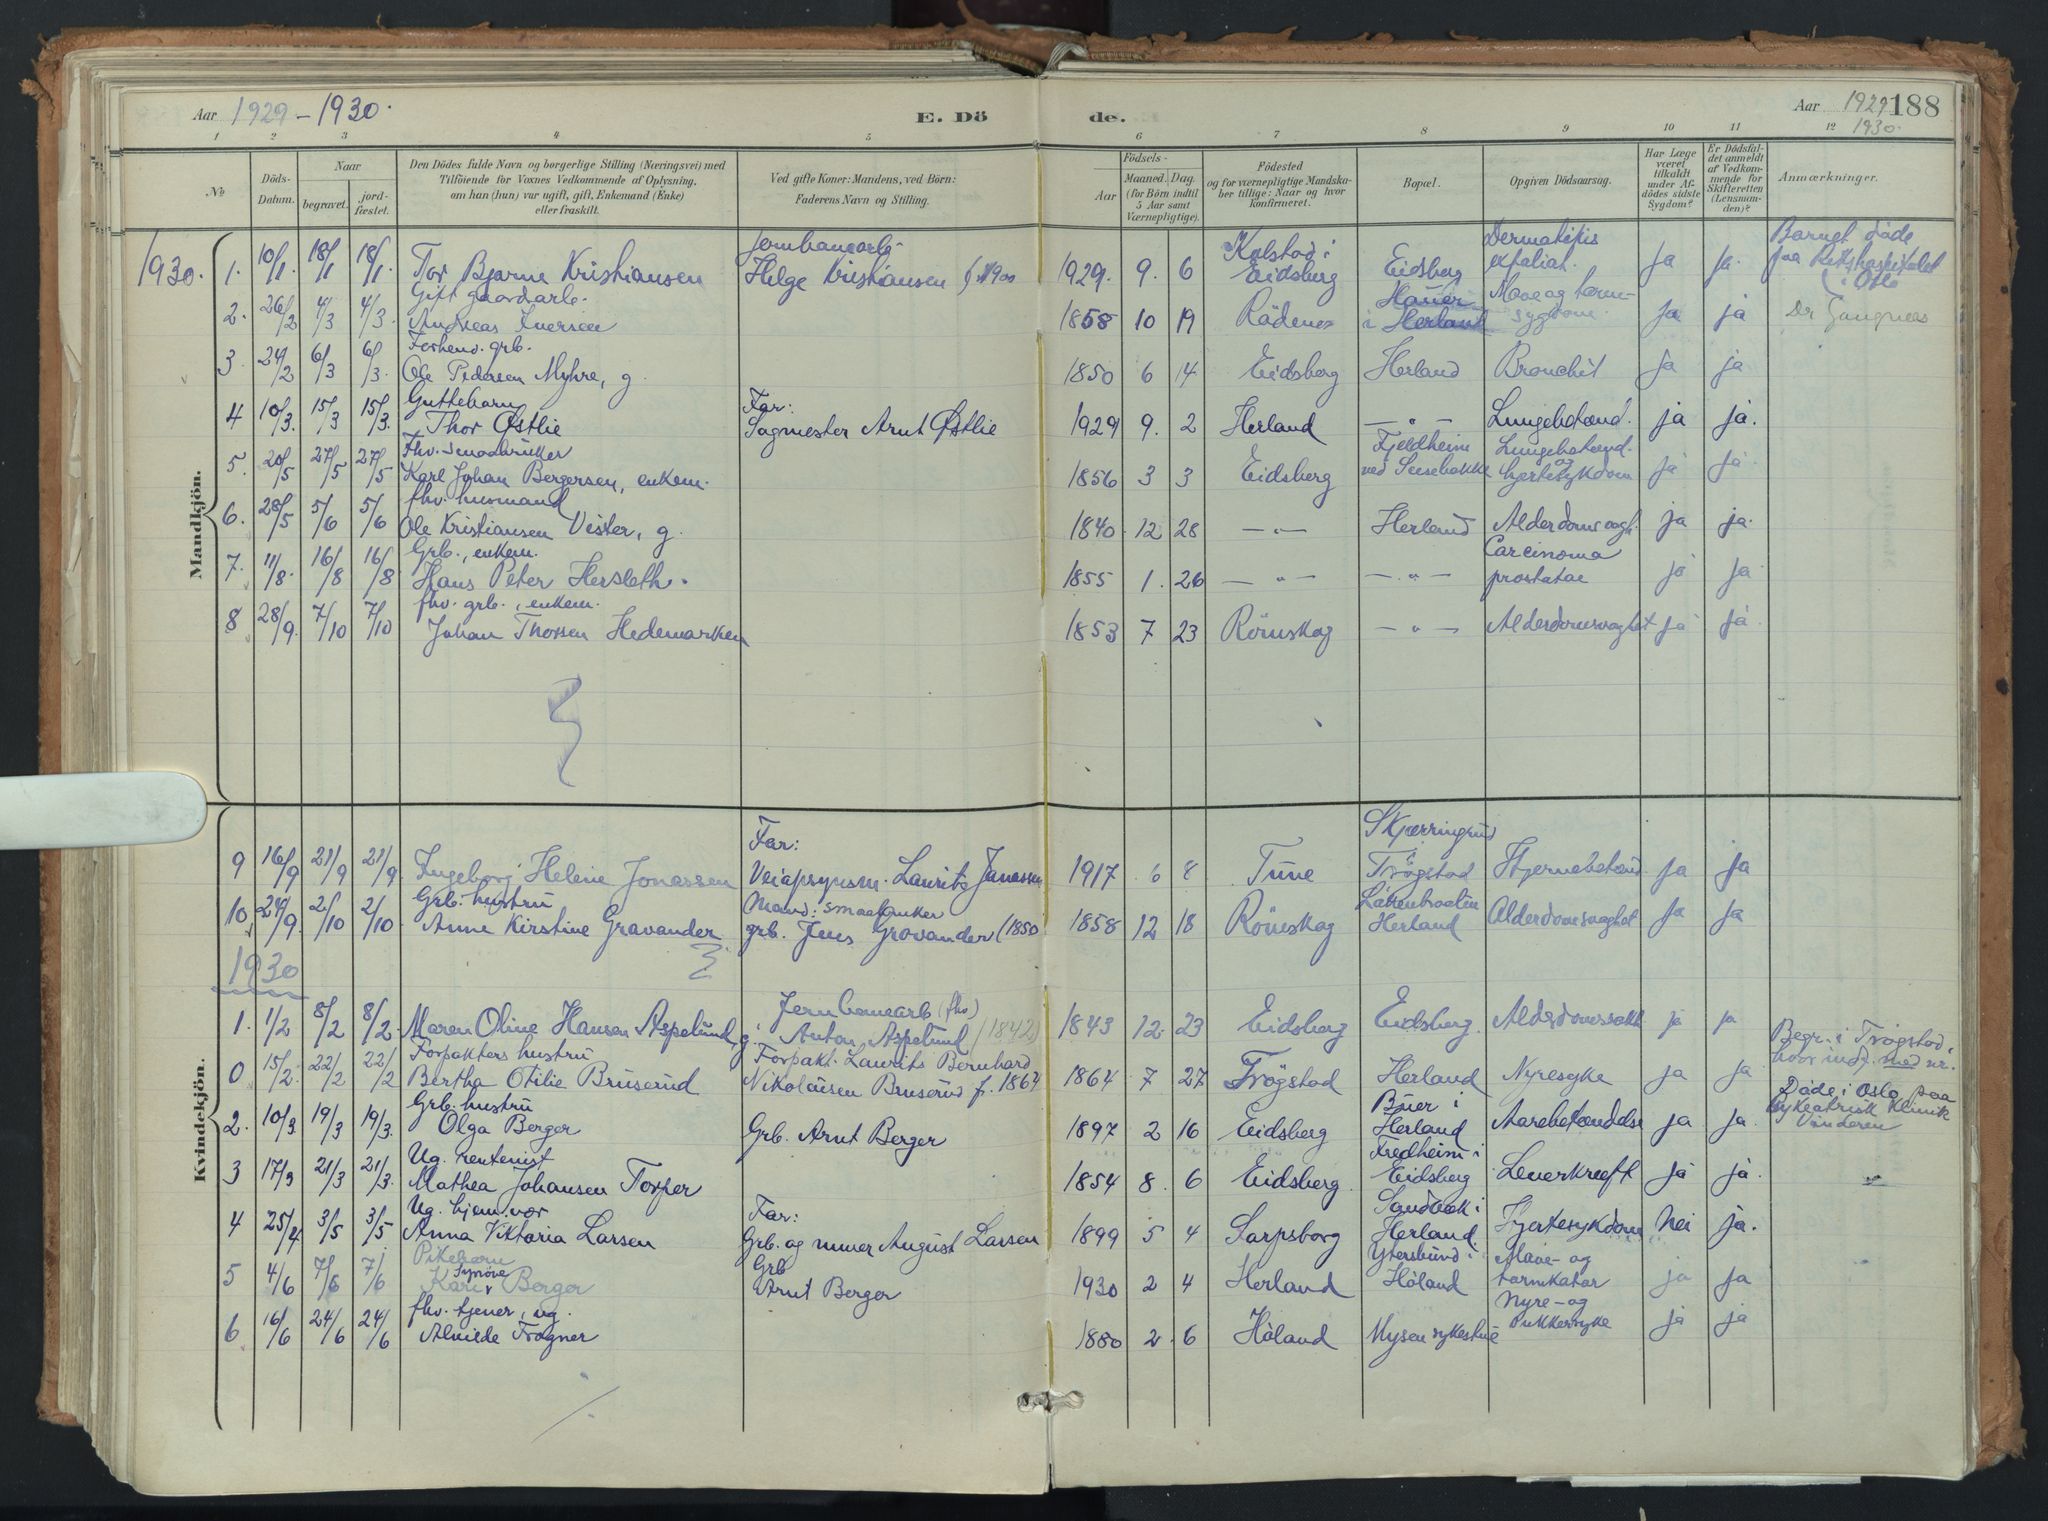 Aar 1929 - 1930.
E. Dö
de.
Aar 1929 188
1930.
1 2 3 4 5 6 7 8 9 10 11 12
No
Döds-Datum.
Naar
begravet.
jord-fæstet.
Den Dödes fulde Navn og borgerlige Stilling (Næringsvei) med
Tilföiende for Voxnes Vedkommende af Oplysning,
om han (hun) var ugift, gift, Enkemand (Enke)
eller fraskilt.
Ved gifte Koner: Mandens, ved Börn:
Faderens Navn og Stilling.
Födsels-
Aar
Maaned. Dag.
(for Börn indtil
5 Aar samt
Værnepligtige).
Födested
og for værnepligtige Mandska-
ber tillige: Naar og hvor
konfirmeret.
Bopæl.
Opgiven Dödsaarsag.
Har Læge
været
tilkaldt
under Af-
dödes sidste
Sygdom?
Er Dödsfal-
det anmeldt
af Vedkom-
mende for
Skifteretten
(Lensman-
den)?
Anmærkninger.
Mandkjön.
1930. 1. 10/1 18/1 18/1 Tor Bjarne Kristiansen
Jernbanearb.
Helge Kristiansen f. 1900 1929. 9. 6 Kolstad i
Eidsberg Eidsberg
exfoliat. ja ja. Barnet døde
paa Rikshospitalet
i Oslo
Gift gaardarb.
2. 26/2 4/3 4/3. Andreas Iversen 1858 10 19 Rödenes i Herland Mave og tarm-
sygdom ja ja
Forhenv. grb.
3. 24/2 6/3 6/3. Ole Pedersen Myhre, g. 1850 6 14 Eidsberg Herland Bronchit ja ja
Guttebarn
4 10/3. 15/3 15/3. Thor Østlie Far:
Sagmester Arnt Østlie 1929 9. 2 Herland — " — Lungebetænd. ja ja.
Fhv. smaabruker
5. 20/5 27/5 27/5 Karl Johan Bergersen, enkem. 1856 3 3 Eidsberg Fjeldheim
ved Slisebakke Lungebetænd.
og
hjertesykdom ja ja
fhv. husmand
6. 28/5 5/6 5/6 Ole Kristiansen Vister, g. 1840. 12 28 — " — Herland Alderdomsvagh. ja ja.
Grb., enkem.
7. 11/8. 16/8 16/8 Hans Peter Hersleth. 1855 1. 26 — " — — " — Carcinoma
prostatae ja ja
fhv. grb., enkem.
8 28/9. 7/10 7/10 Johan Thorsen Hedemarken 1853 7 23 Römskog — " — Alderdomsvaghet ja ja.
Kvindekjön.
9 16/9 21/9 21/9 Ingeborg Helene Jonassen Far:
Veiopsynsm. Laurits Jonassen 1917 6 8 Tune Skjærringrud
i
Trøgstad Hjernebetænd. ja ja
Grb. hustru
10 24/9. 2/10 2/10 Anne Kirstine Gravander Mand: smaabruker
grb. Jens Gravander (1850 1858 12 18 Römskog
Herland Alderdomsvaghet ja ja
1930
1. 1/2 8/2 8/2. Maren Oline Hansen Aspelund, g. Jernbanearb (fhv)
Anton Aspelund (1842) 1843 12 23 Eidsberg Eidsberg. ja ja
Forpakters hustru
0 15/2. 22/2 22/2 Bertha Otilie Bruserud Forpakt. Laurits Bernhard
Nikolaisen Bruserud f. 1864 1864 7 27 Trøgstad Herland Nyresyke ja ja Begr. i Trøgstad,
hvor indf. med nr.
Grb. hustru
2. 10/3 19/3 19/3. Olga Berger Grb. Arnt Berger 1897 2 16 Eidsberg Buer i
Herland Aarebetændelse ja ja. Døde i Oslo paa
Klinik
Vinderen
Ug. rentenist
3 17/3 21/3 21/3. Mathea Johansen Torper 1854 8. 6 Eidsberg. Fredheim i
Eidsberg Leverkræft ja ja. "
Ug. hjemmevær.
4 25/4 3/5 3/5 Anna Viktoria Larsen Far:
Grb. og murer August Larsen 1899 5 4 Sarpsborg Sandbæk i
Herland. Hjertesykdom Nei ja.
Pikebarn
5 4/6 7/6 7/6 Kari Synöve Berger Grb
Arnt Berger 1930 2 4 Herland
Höland Mave- og
tarmkatar ja ja
fhv. tjener, ug.
6 16/6 24/6 24/6 Alvilde Frogner 1880 2. 6 Höland Mysen sykestue Nyre- og
Sukkersyke ja ja